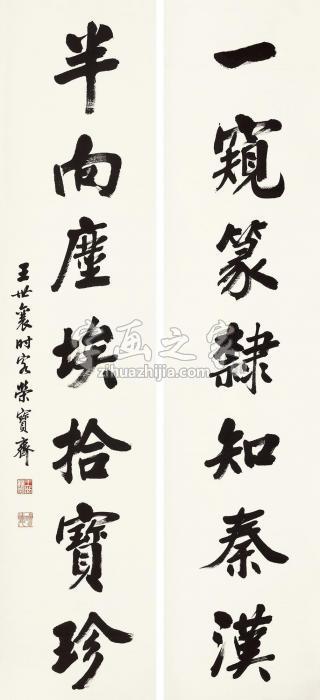 一窺篆隸知秦漢
半向塵埃拾寶珍
王世襄时客榮寶齋
字画之家
zihuazhijia.com